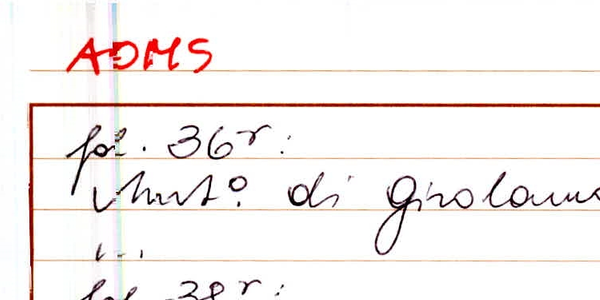 ADMS
fol. 36r:
di Girolamo
...
fol. 38r: